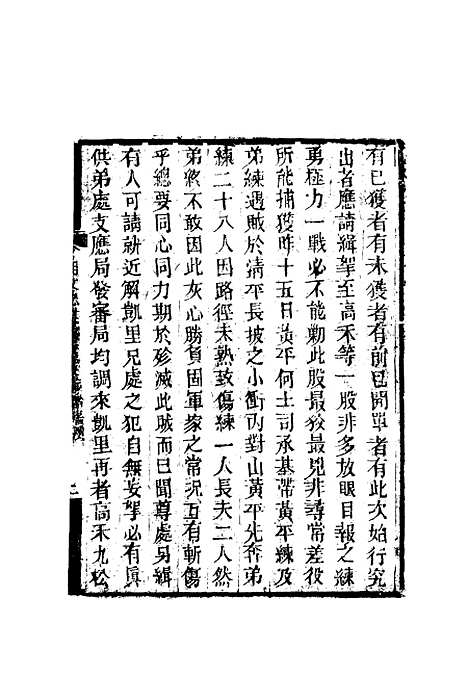 有已獲者有未獲者有前已開單者有此次始行究
出者應請緝拏至高禾等一股非多放眼目報之練
勇極力一戰必不能剿此股最狡最兇非尋常差役
所能捕獲昨十五日黃平何土司承基帶黃平練及
弟練遇賊於清平長坡之小衝內對山黃平先奔弟
練二十八人因路徑未熟致傷練一人長夫二人然
弟終不敢因此灰心勝負固軍家之常況互有斬傷
乎總要同心同力期於殄滅此賊而已聞尊處另緝
有人可請就近解凱里兄處之犯自無妄拏必有眞
供弟處支應局發審局均調來凱里再者高禾九松